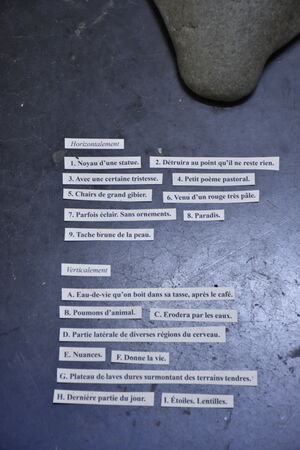 Horizontalement
1. Noyau d'une statue. 2. Détruira au point qu'il ne reste rien.
3. Avec une certaine tristesse. 4. Petit poème pastoral.
5. Chairs de grand gibier. 6. Venu d'un rouge très pâle.
7. Parfois éclair. Sans ornements. 8. Paradis.
9. Tache brune de la peau.
Verticalement
A. Eau-de-vie qu'on boit dans sa tasse, après le café.
B. Poumons d'animal. C. Erodera par les eaux.
D. Partie latérale de diverses régions du cerveau.
E. Nuances. F. Donne la vie.
G. Plateau de laves dures surmontant des terrains tendres.
H. Dernière partie du jour. I. Étoiles. Lentilles.